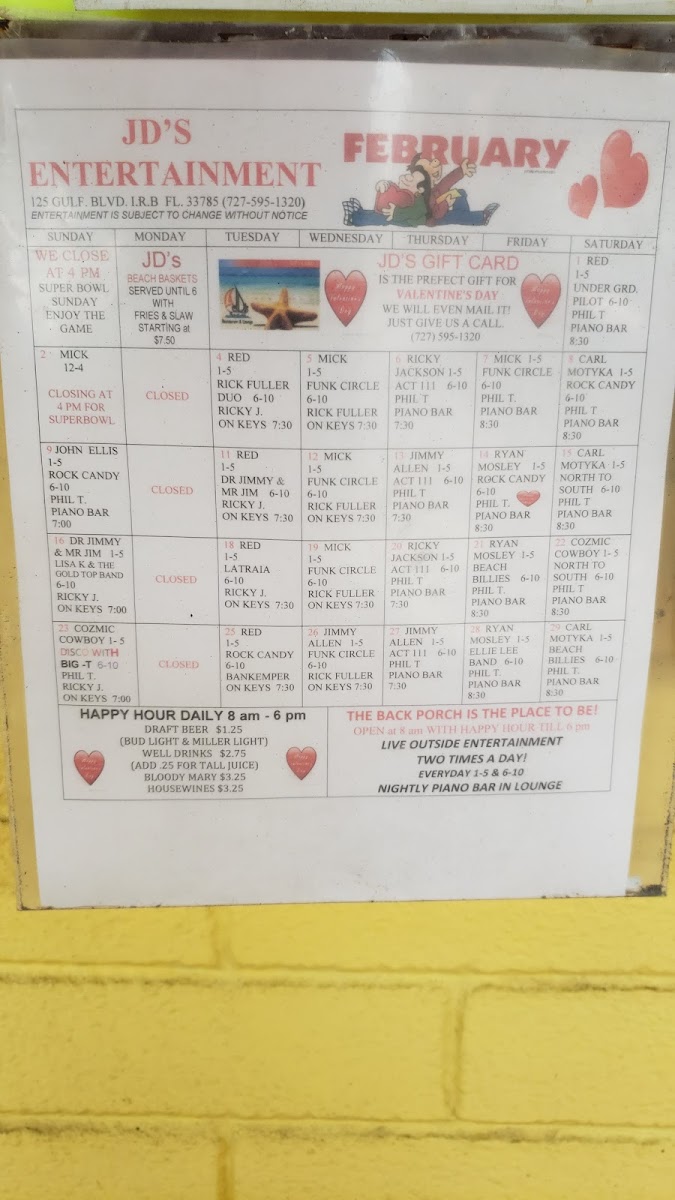 JD'S
ENTERTAINMENT
FEBRUARY
125 GULF. BLVD. I.R.B FL. 33785 (727-595-1320)
ENTERTAINMENT IS SUBJECT TO CHANGE WITHOUT NOTICE
SUNDAY MONDAY TUESDAY WEDNESDAY THURSDAY FRIDAY SATURDAY
WE CLOSE
AT 4 PM
SUPER BOWL
SUNDAY
ENJOY THE
GAME
JD's
BEACH BASKETS
SERVED UNTIL 6
WITH
FRIES & SLAW
STARTING at
$7.50
Happy
Valentine's
Day
JD'S GIFT CARD
IS THE PREFECT GIFT FOR
VALENTINE'S DAY
WE WILL EVEN MAIL IT!
JUST GIVE US A CALL.
(727) 595-1320
Happy
Valentine's
Day
1 RED
1-5
UNDER GRD.
PILOT 6-10
PHIL T
PIANO BAR
8:30
2 MICK
12-4
CLOSING AT
4 PM FOR
SUPERBOWL
CLOSED
4 RED
1-5
RICK FULLER
DUO 6-10
RICKY J.
ON KEYS 7:30
5 MICK
1-5
FUNK CIRCLE
6-10
RICK FULLER
ON KEYS 7:30
6 RICKY
JACKSON 1-5
ACT 111 6-10
PHIL T
PIANO BAR
7:30
7 MICK 1-5
FUNK CIRCLE
6-10
PHIL T.
PIANO BAR
8:30
8 CARL
MOTYKA 1-5
ROCK CANDY
6-10
PHIL T
PIANO BAR
8:30
9 JOHN ELLIS
1-5
ROCK CANDY
6-10
PHIL T.
PIANO BAR
7:00
CLOSED
11 RED
1-5
DR JIMMY &
MR JIM 6-10
RICKY J.
ON KEYS 7:30
12 MICK
1-5
FUNK CIRCLE
6-10
RICK FULLER
ON KEYS 7:30
13 JIMMY
ALLEN 1-5
ACT 111 6-10
PHIL T
PIANO BAR
7:30
14 RYAN
MOSLEY 1-5
ROCK CANDY
6-10
PHIL T.
PIANO BAR
8:30
15 CARL
MOTYKA 1-5
NORTH TO
SOUTH 6-10
PHIL T
PIANO BAR
8:30
16 DR JIMMY
& MR JIM 1-5
LISA K & THE
GOLD TOP BAND
6-10
RICKY J.
ON KEYS 7:00
CLOSED
18 RED
1-5
LATRAIA
6-10
RICKY J.
ON KEYS 7:30
19 MICK
1-5
FUNK CIRCLE
6-10
RICK FULLER
ON KEYS 7:30
20 RICKY
JACKSON 1-5
ACT 111 6-10
PHIL T
PIANO BAR
7:30
21 RYAN
MOSLEY 1-5
BEACH
BILLIES 6-10
PHIL T.
PIANO BAR
8:30
22 COZMIC
COWBOY 1- 5
NORTH TO
SOUTH 6-10
PHIL T
PIANO BAR
8:30
23 COZMIC
COWBOY 1- 5
DISCO WITH
BIG -T 6-10
PHIL T.
RICKY J.
ON KEYS 7:00
CLOSED
25 RED
1-5
ROCK CANDY
6-10
BANKEMPER
ON KEYS 7:30
26 JIMMY
ALLEN 1-5
FUNK CIRCLE
6-10
RICK FULLER
ON KEYS 7:30
27 JIMMY
ALLEN 1-5
ACT 111 6-10
PHIL T
PIANO BAR
7:30
28 RYAN
MOSLEY 1-5
ELLIE LEE
BAND 6-10
PHIL T.
PIANO BAR
8:30
29 CARL
MOTYKA 1-5
BEACH
BILLIES 6-10
PHIL T.
PIANO BAR
8:30
HAPPY HOUR DAILY 8 am - 6 pm
DRAFT BEER $1.25
(BUD LIGHT & MILLER LIGHT)
WELL DRINKS $2.75
(ADD .25 FOR TALL JUICE)
BLOODY MARY $3.25
HOUSEWINES $3.25
THE BACK PORCH IS THE PLACE TO BE!
OPEN at 8 am WITH HAPPY HOUR TILL 6 pm
LIVE OUTSIDE ENTERTAINMENT
TWO TIMES A DAY!
EVERYDAY 1-5 & 6-10
NIGHTLY PIANO BAR IN LOUNGE